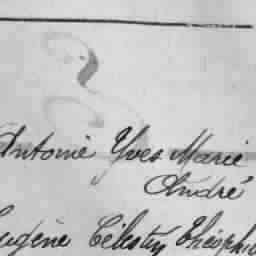 Antoine Yves Marie
André
Eugène Célestin Théophile